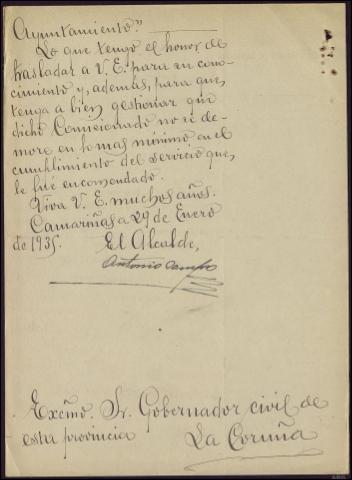 Ayuntamiento."
Lo que tengo el honor de
trasladar a V. E. para su cono-
cimiento y, además, para que,
tenga a bien gestionar que
dicho Comisionado no se de-
more en lo mas mínimo en el
cumplimiento del servicio que,
le fué encomendado.
Viva V. E. muchos años.
Camariñas a 29 de Enero
de 1935.
El Alcalde,
Antonio Campos
Excmo. Sr. Gobernador civil de
esta provincia
La Coruña